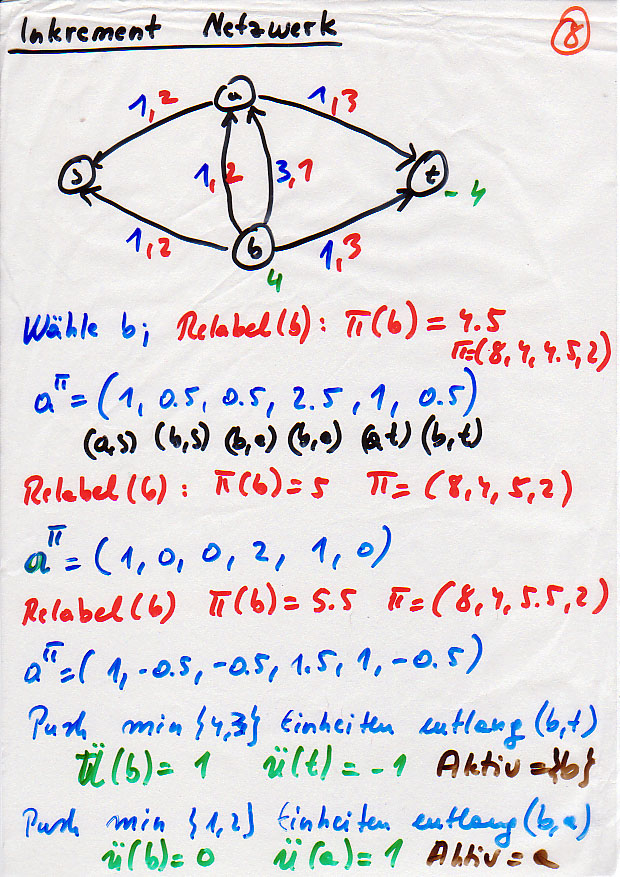 Inkrement Netzwerk
8
a
1,2
1,3
s
1,2
3,1
t
-4
1,2
b
1,3
4
Wähle b; Relabel(b): π(b) = 4.5
π=(8,4,4.5,2)
a^π = (1, 0.5, 0.5, 2.5, 1, 0.5)
(a,s) (b,s) (b,a) (b,a) (a,t) (b,t)
Relabel(b): π(b)=5 π= (8,4,5,2)
a^π = (1, 0, 0, 2, 1, 0)
Relabel(b) π(b)=5.5 π= (8,4,5.5,2)
a^π=(1,-0.5,-0.5,1.5,1,-0.5)
Push min {4,3} Einheiten entlang (b,t)
ü(b)= 1 ü(t)=-1 Aktiv={b}
Push min {1,2} Einheiten entlang (b,a)
ü(b)=0 ü(a)=1 Aktiv=a